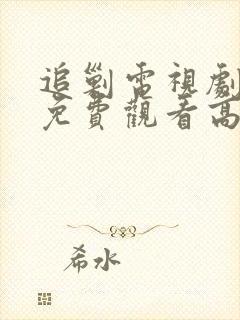 追剿電視劇
免費觀看高
希水